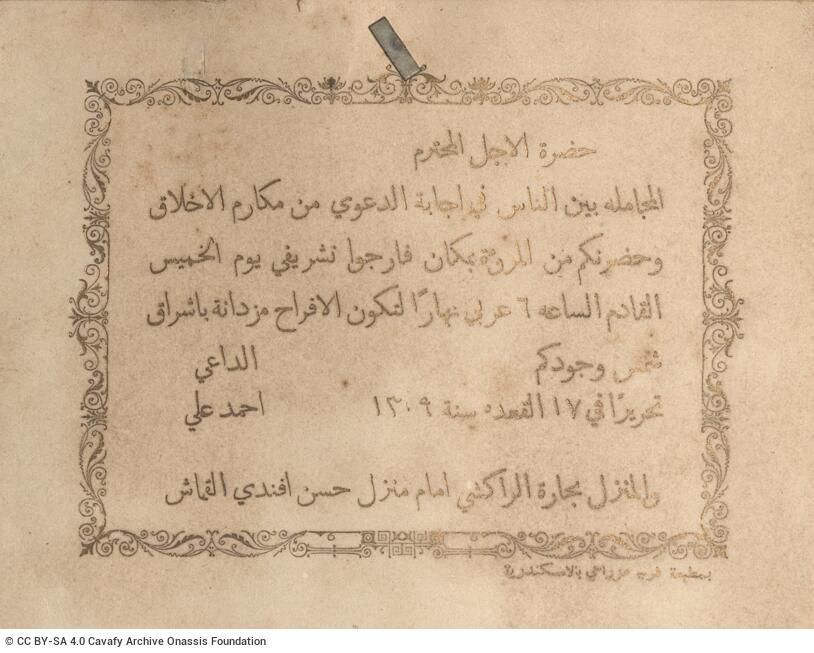 حضرة الاجل المحترم
المجامله بين الناس في اجابة الدعوي من مكارم الاخلاق
وحضرتكم من المروءة بمكان فارجوا تشريفي يوم الخميس
القادم الساعه ٦ عربي نهارًا لتكون الافراح مزدانة باشراق
شمس وجودكم الداعي
تحريرًا في ١٧ القعده سنة ١٣٠٩ احمد علي
والمنزل بحارة الراكشي امام منزل حسن افندي القماش
بمطبعة بالاسكندرية
© CC BY-SA 4.0 Cavafy Archive Onassis Foundation